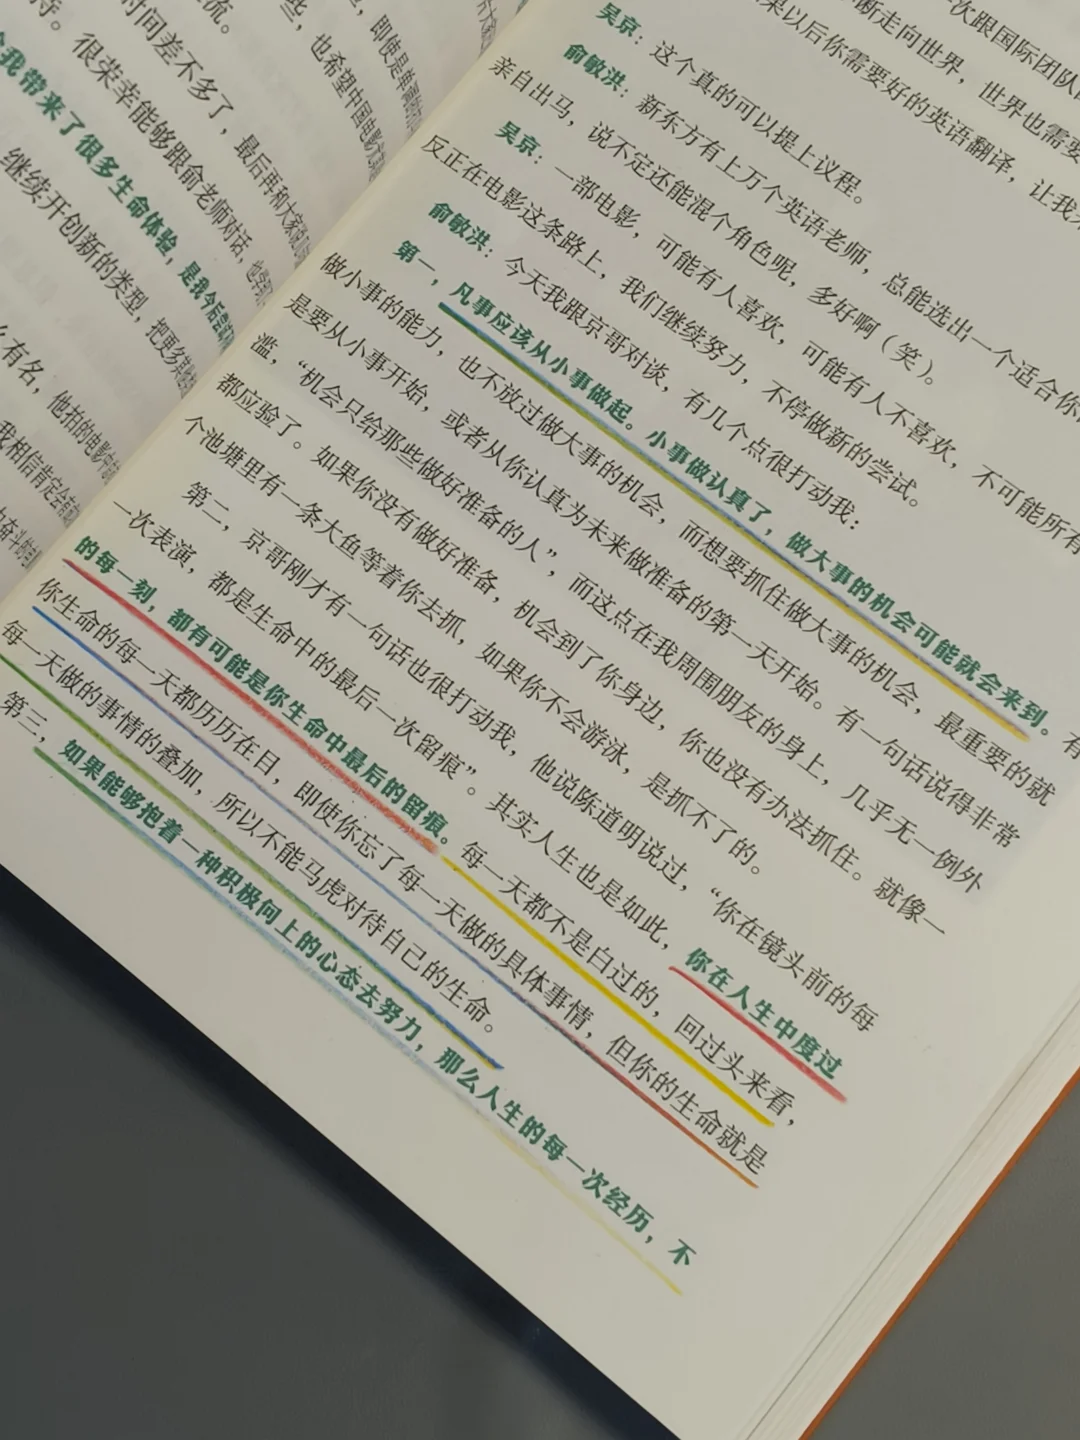 流。
时间差不多了，最后再和大家说
待。很荣幸能够跟俞老师对话，也学到
给我带来了很多生命体验，是我今后尝试
继续开创新的类型，把更多其他
么有名，他拍的电影
我相信肯定会有
些，也希望中国电影
，即使是单调的
次跟国际团队
不断走向世界，世界也需要
果以后你需要好的英语翻译，让我
吴京：这个真的可以提上议程。
俞敏洪：新东方有上万个英语老师，总能选出一个适合你
亲自出马，说不定还能混个角色呢，多好啊（笑）。
吴京：一部电影，可能有人喜欢，可能有人不喜欢，不可能所有
反正在电影这条路上，我们继续努力，不停做新的尝试。
俞敏洪：今天我跟京哥对谈，有几个点很打动我：
第一，凡事应该从小事做起。小事做认真了，做大事的机会可能就会来到。有
做小事的能力，也不放过做大事的机会，而想要抓住做大事的机会，最重要的就
是要从小事开始，或者从你认真为未来做准备的第一天开始。有一句话说得非常
滥，“机会只给那些做好准备的人”，而这点在我周围朋友的身上，几乎无一例外
都应验了。如果你没有做好准备，机会到了你身边，你也没有办法抓住。就像一
个池塘里有一条大鱼等着你去抓，如果你不会游泳，是抓不了的。
第二，京哥刚才有一句话也很打动我，他说陈道明说过，“你在镜头前的每
一次表演，都是生命中的最后一次留痕”。其实人生也是如此，你在人生中度过
的每一刻，都有可能是你生命中最后的留痕。每一天都不是白过的，回过头来看，
你生命的每一天都历历在目，即使你忘了每一天做的具体事情，但你的生命就是
每一天做的事情的叠加，所以不能马虎对待自己的生命。
第三，如果能够抱着一种积极向上的心态去努力，那么人生的每一次经历，不